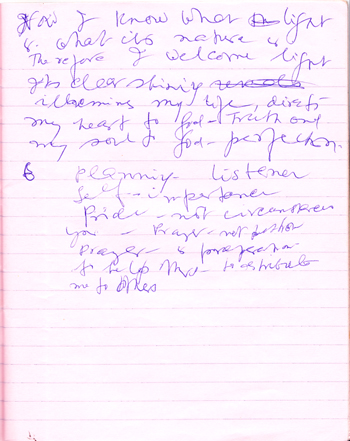 Now I know what light
is. what its nature is
Therefore I welcome light
its clear shining
illumins my life, directs
my heart to God - Truth and
my soul to God - perfection.
6 planning - listener
Self - importance
Pride - not circumstances
you - Prayer - not
Prayer - is preparation
to help - to distribute
me to others